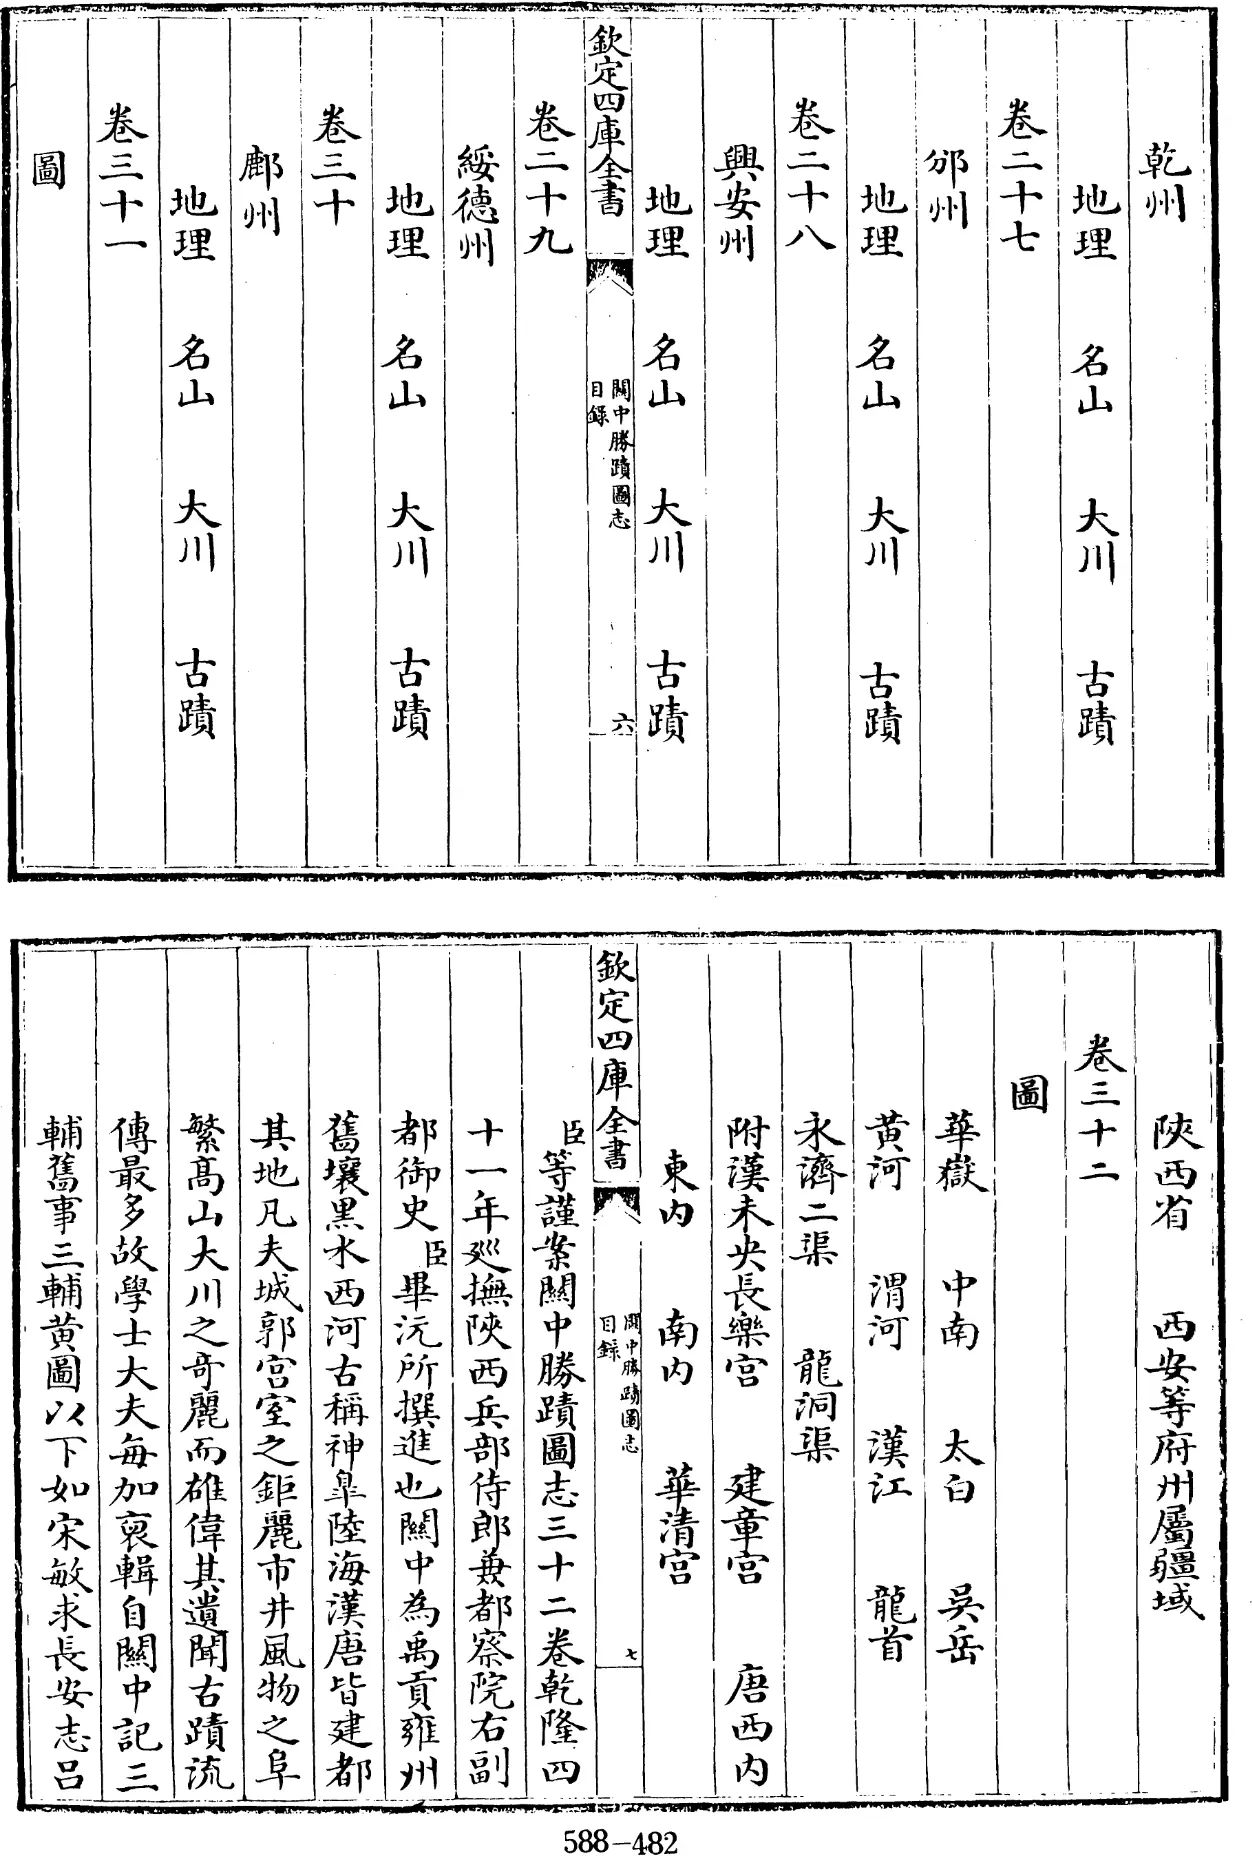 乾州
地理 名山 大川 古蹟
卷二十七
邠州
地理 名山 大川 古蹟
卷二十八
興安州
地理 名山 大川 古蹟
欽定四庫全書
關中勝蹟圖志
目錄
六
卷二十九
綏德州
地理 名山 大川 古蹟
卷三十
鄜州
地理 名山 大川 古蹟
卷三十一
圖
陜西省 西安等府州屬疆域
卷三十二
圖
華嶽 中南 太白 吳岳
黄河 渭河 漢江 龍首
永濟二渠 龍洞渠
附漢未央長樂宫 建章宫 唐西内
東内 南内 華清宫
欽定四庫全書
關中勝蹟圖志
目錄
七
臣等謹案關中勝蹟圖志三十二卷乾隆四
十一年廵撫陜西兵部侍郎兼都察院右副
都御史臣畢沅所撰進也關中為禹貢雍州
舊壤黒水西河古稱神臯陸海漢唐皆建都
其地凡夫城郭宫室之鉅麗市井風物之阜
繁髙山大川之竒麗而雄偉其遺聞古蹟流
傳最多故學士大夫每加裒輯自關中記三
輔舊事三輔黄圖以下如宋敏求長安志吕
588-482